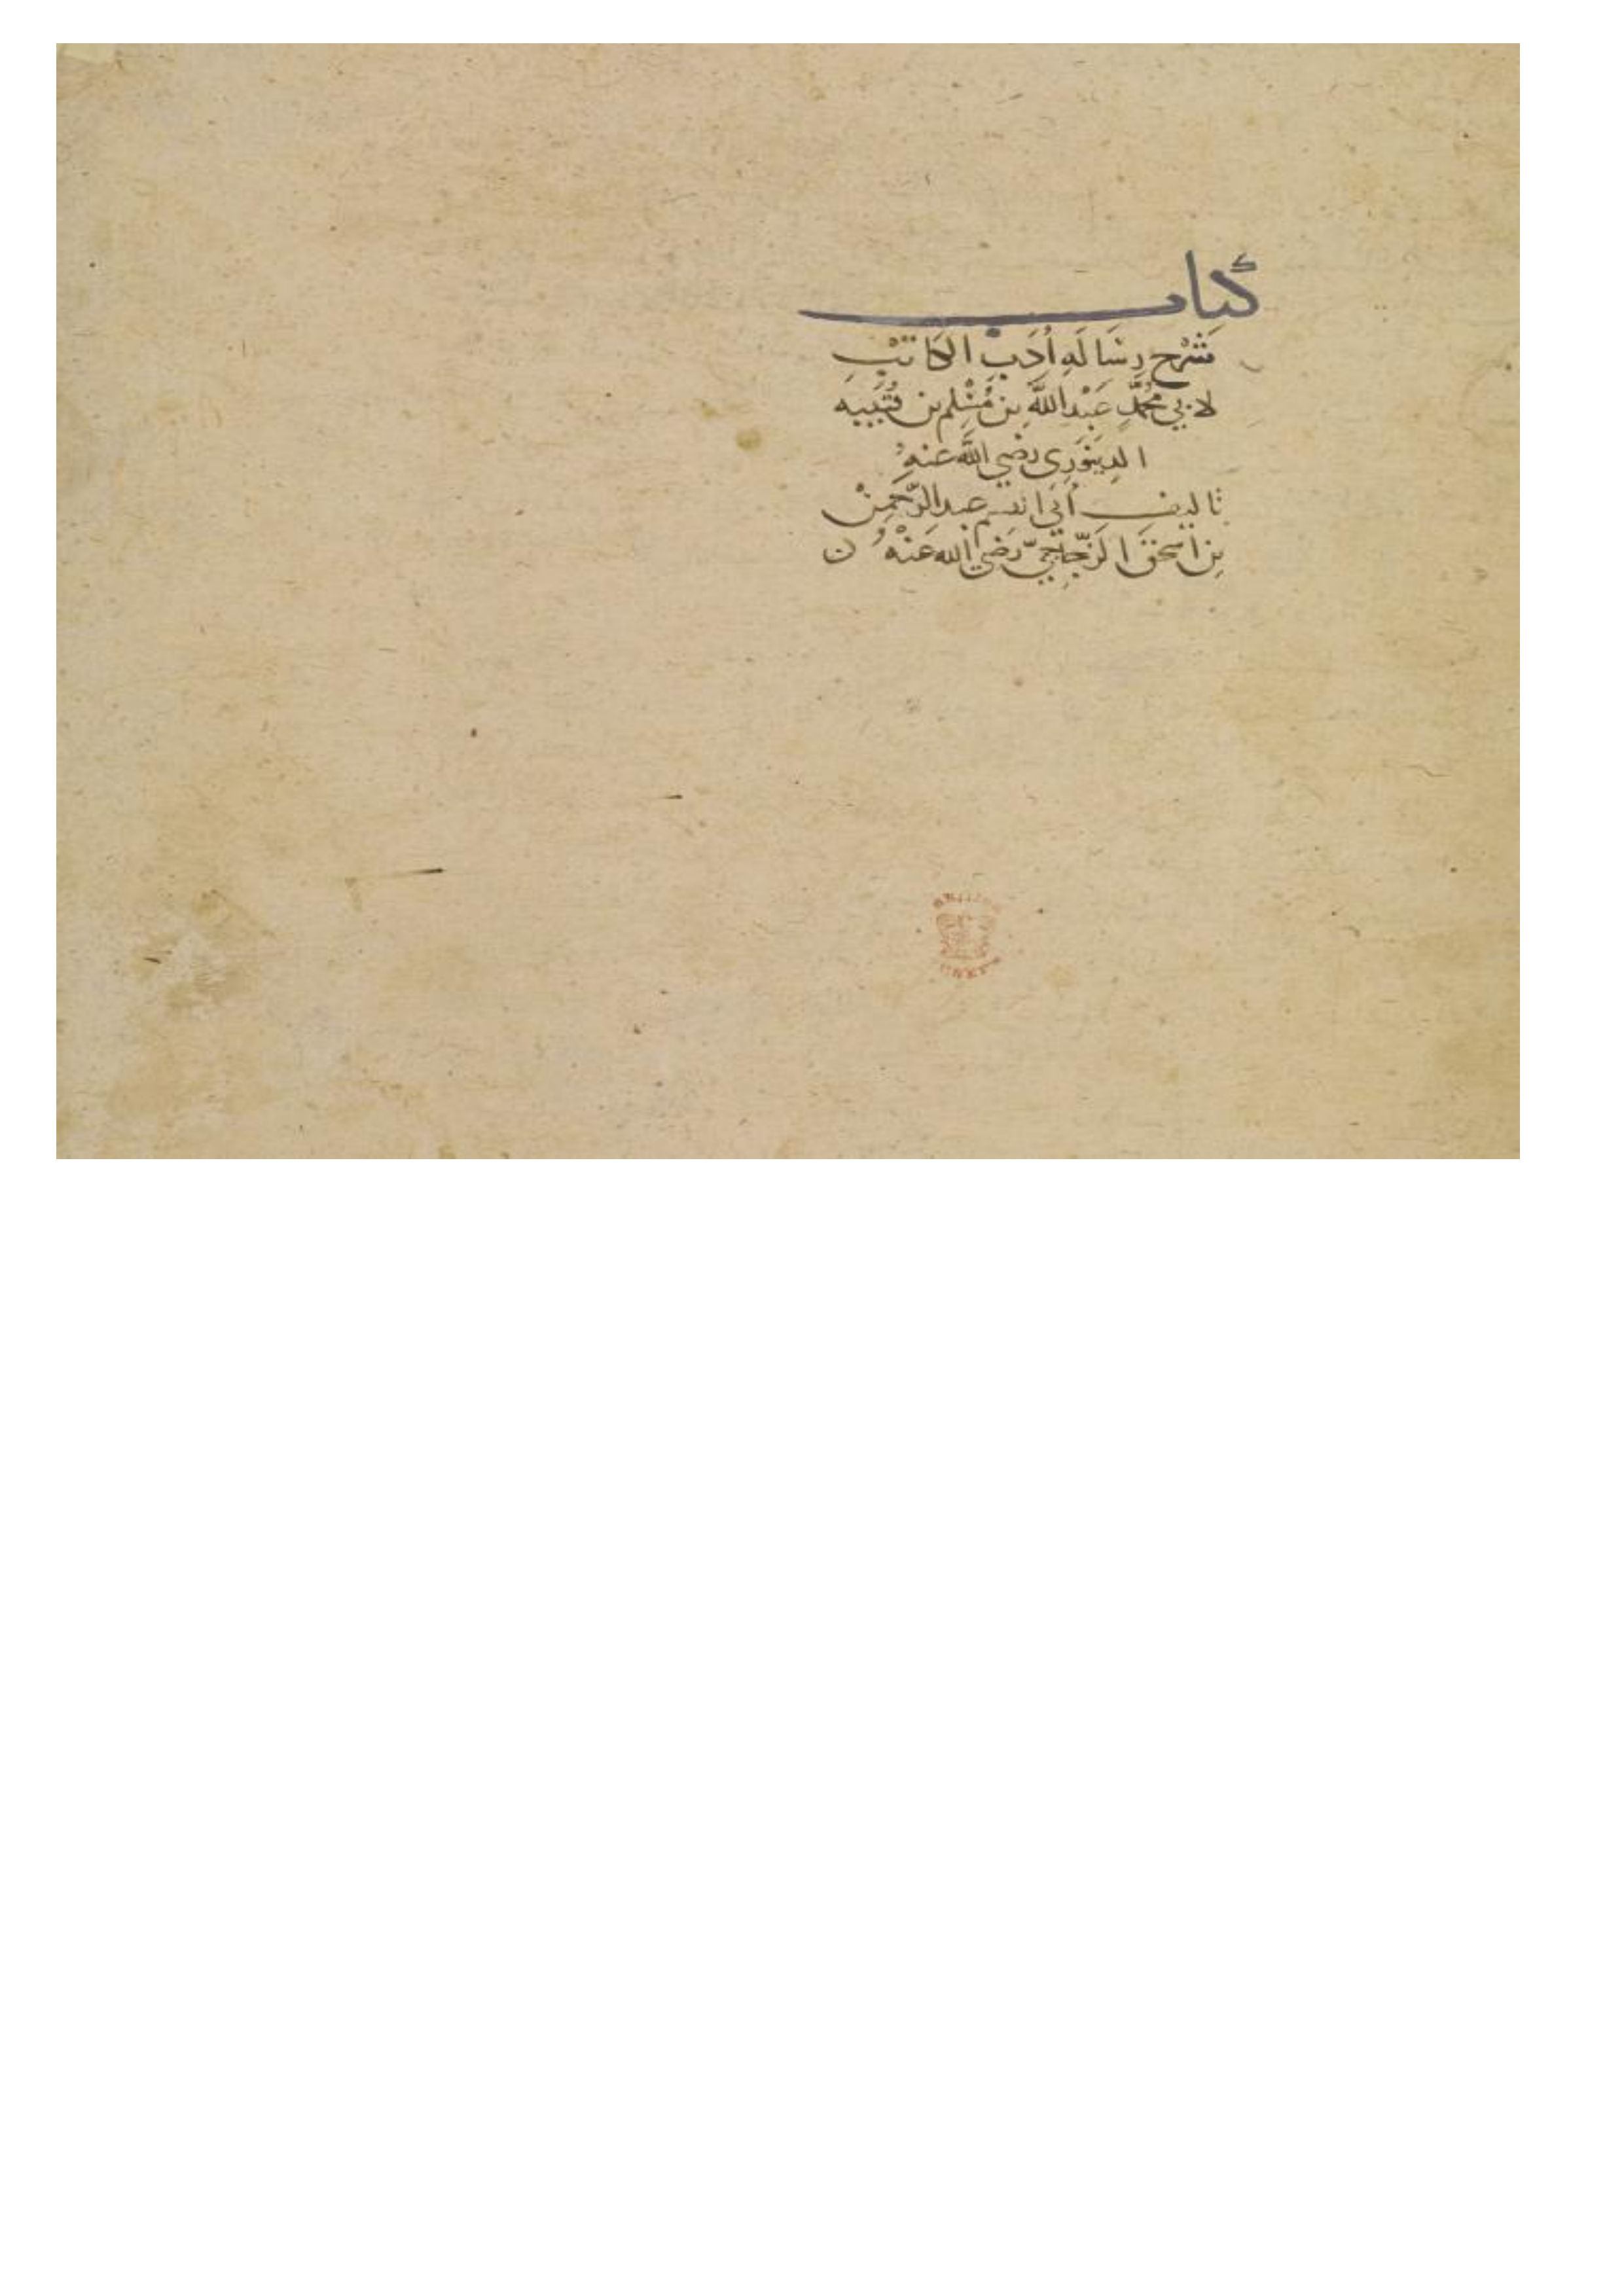 كتاب
شَرْح رِسَالَهِ أَدَبِ الكَاتبِ
لابي مُحمَّدٍ عَبْدِ اللَّهِ بن مُسْلِم بن قُتَيبَه
الدِينَوَرِي رضي اللَّه عنهُ
تاليف أبي القسم عبد الرّحمن
بن اسحق الزّجّاجيّ رَضي الله عَنْهُ ن